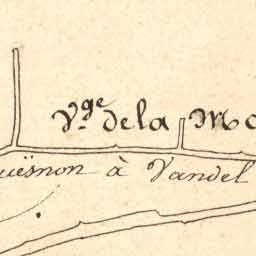 V.ge de la Mo
uësnon à Vandel